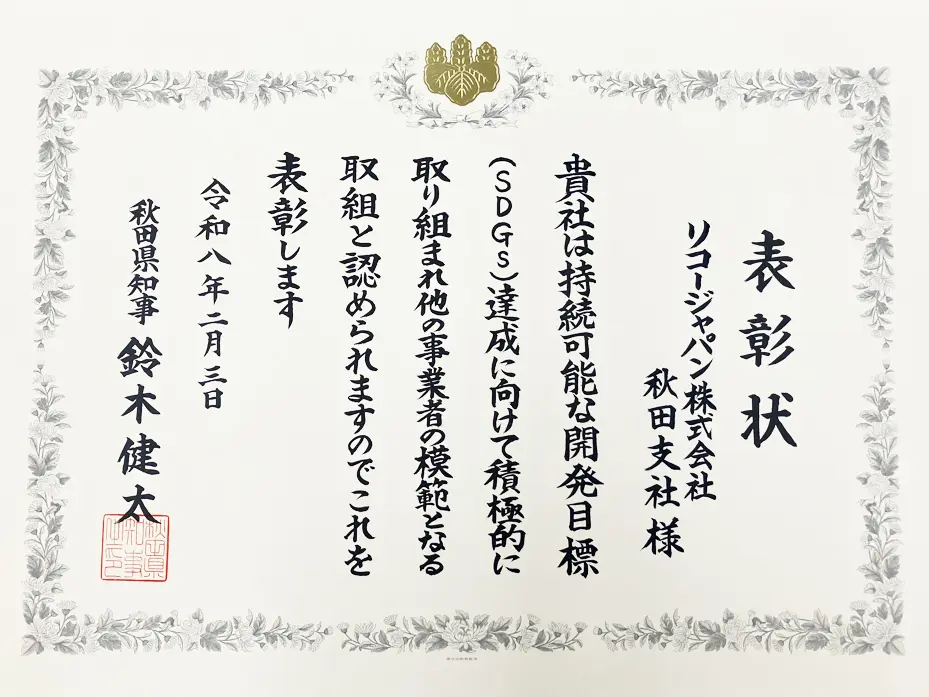 表彰状
リコージャパン株式会社
秋田支社様
貴社は持続可能な開発目標
(SDGs)達成に向けて積極的に
取り組まれ他の事業者の模範となる
取組と認められますのでこれを
表彰します
令和八年二月三日
秋田県知事 鈴木健太